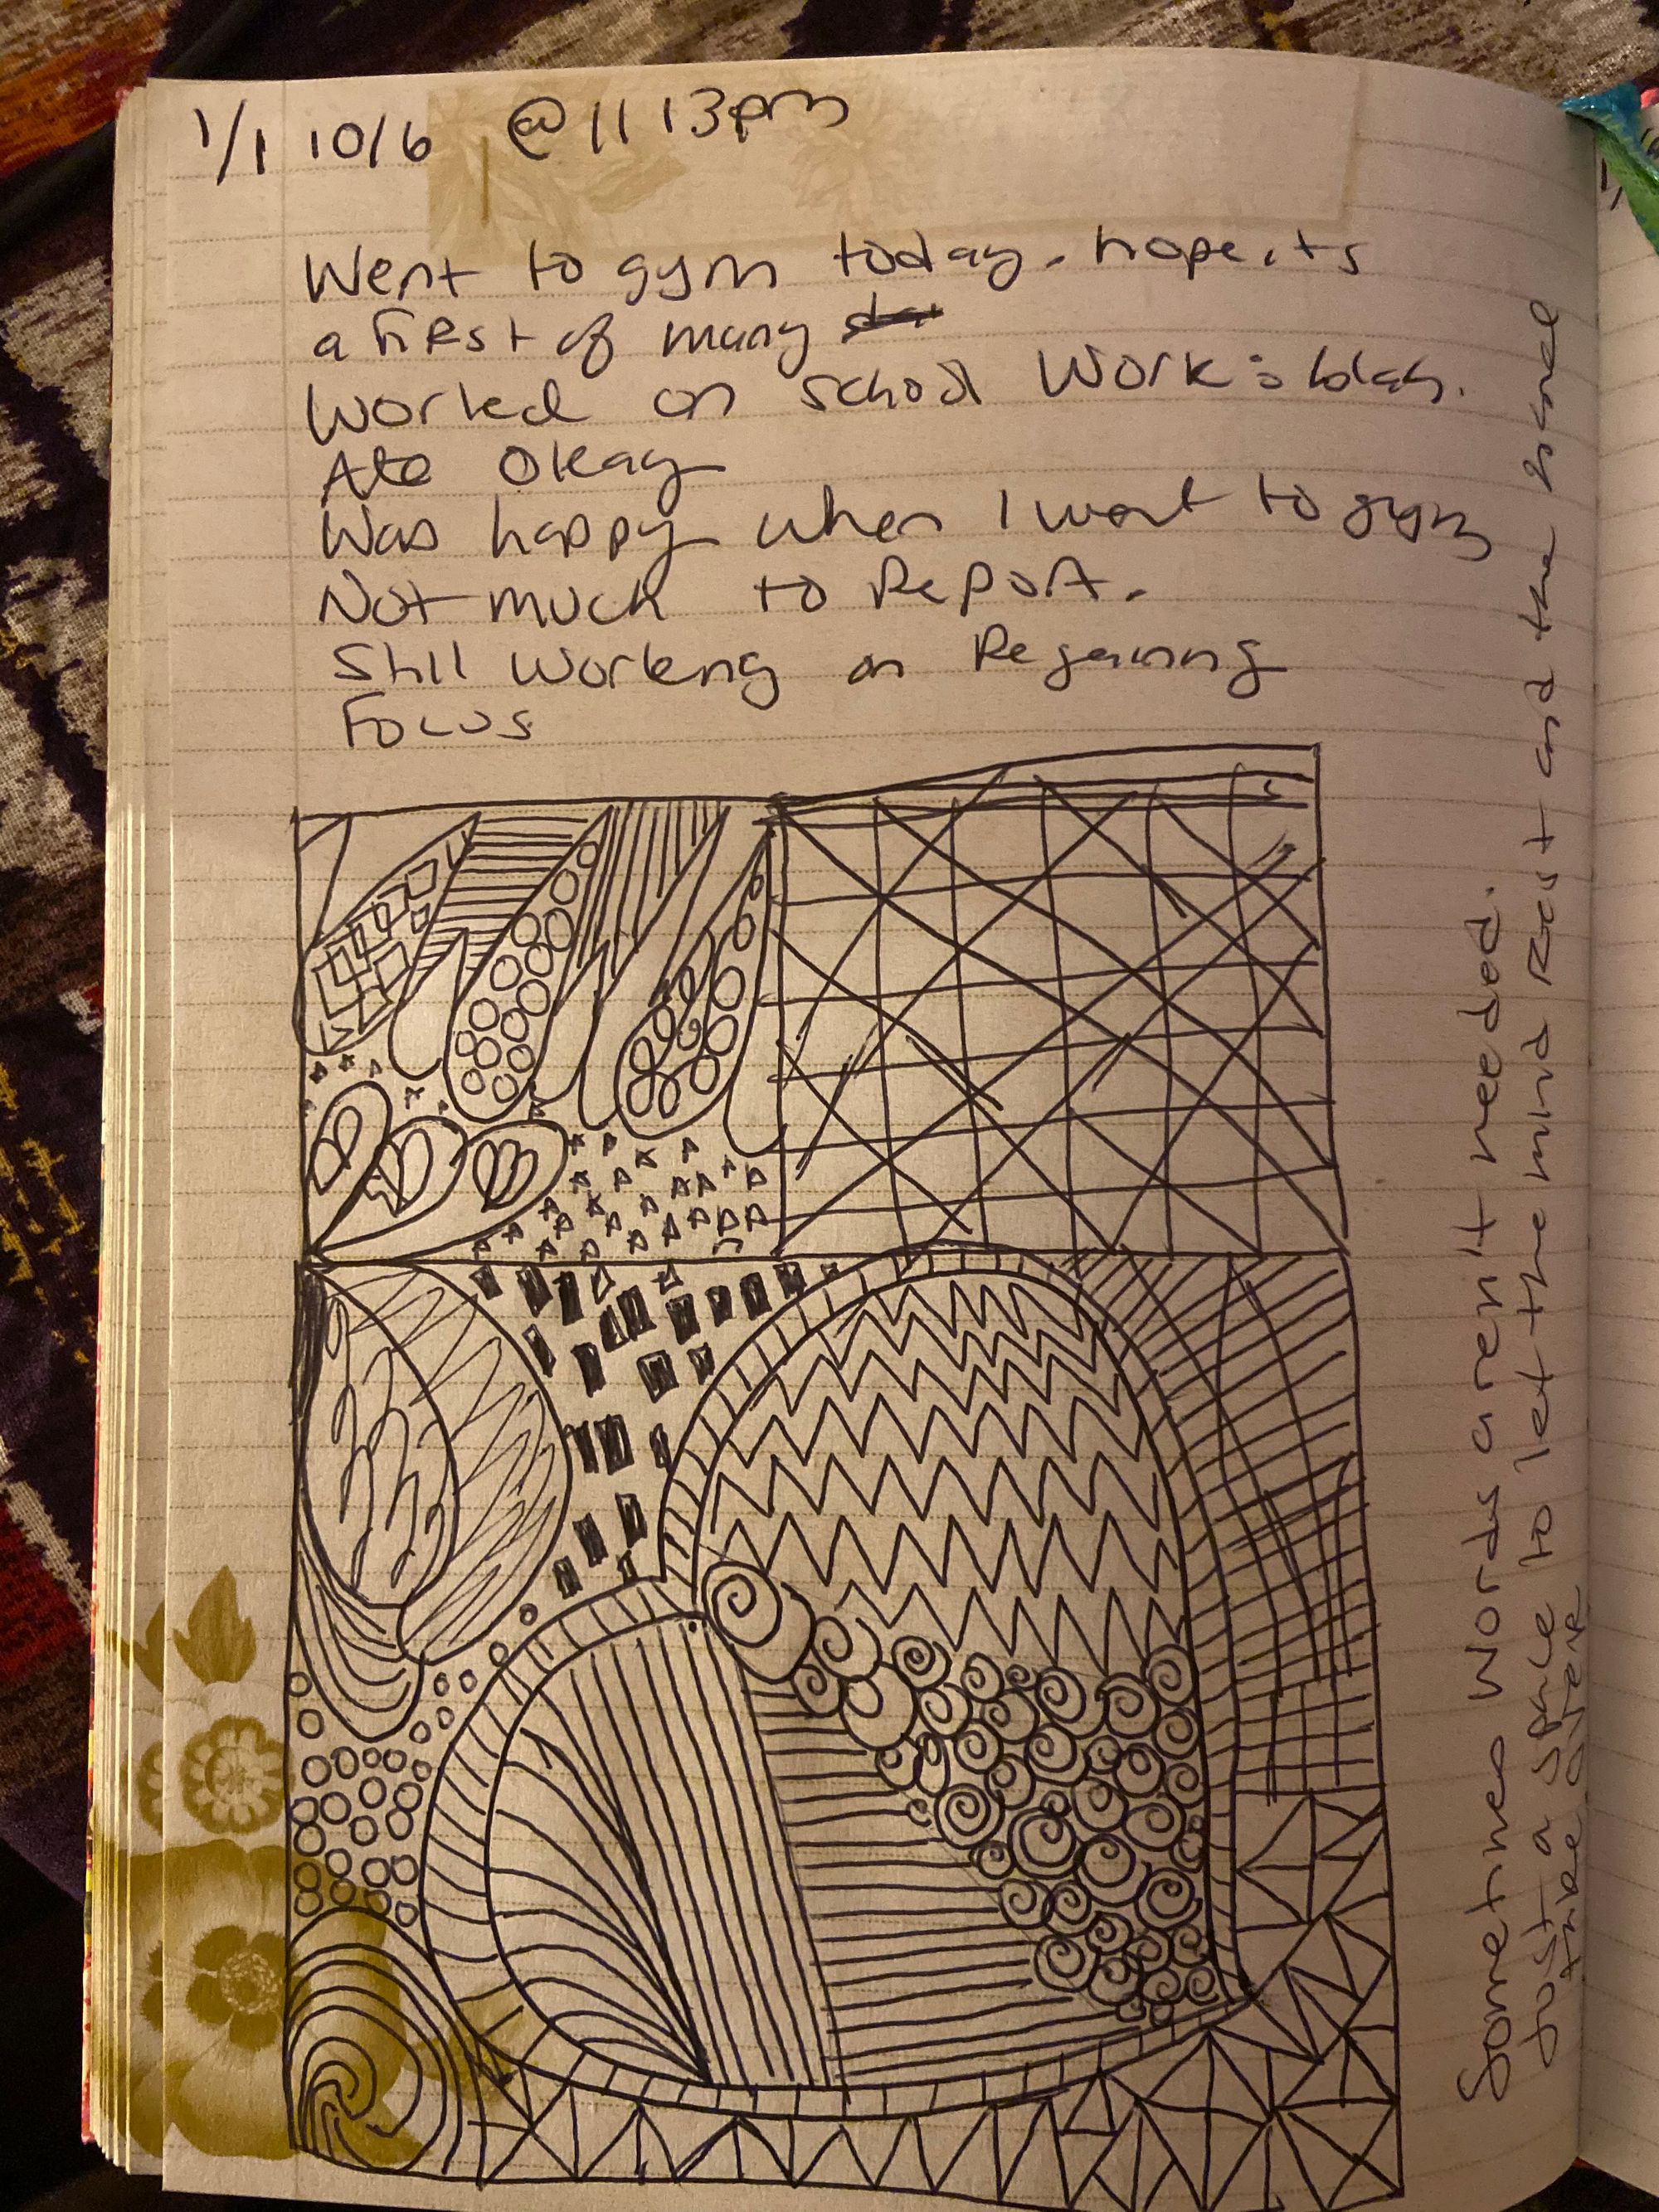 1/1 10/6 @ 11 13pm
Went to gym today. hope its
a first of many
Worked on school work: blah.
Ate okay
Was happy when I went to gym
Not much to Report.
Still working on Regaining
Focus
Sometimes words aren't needed.
Just a space to let the mind Rest and the hand
take over